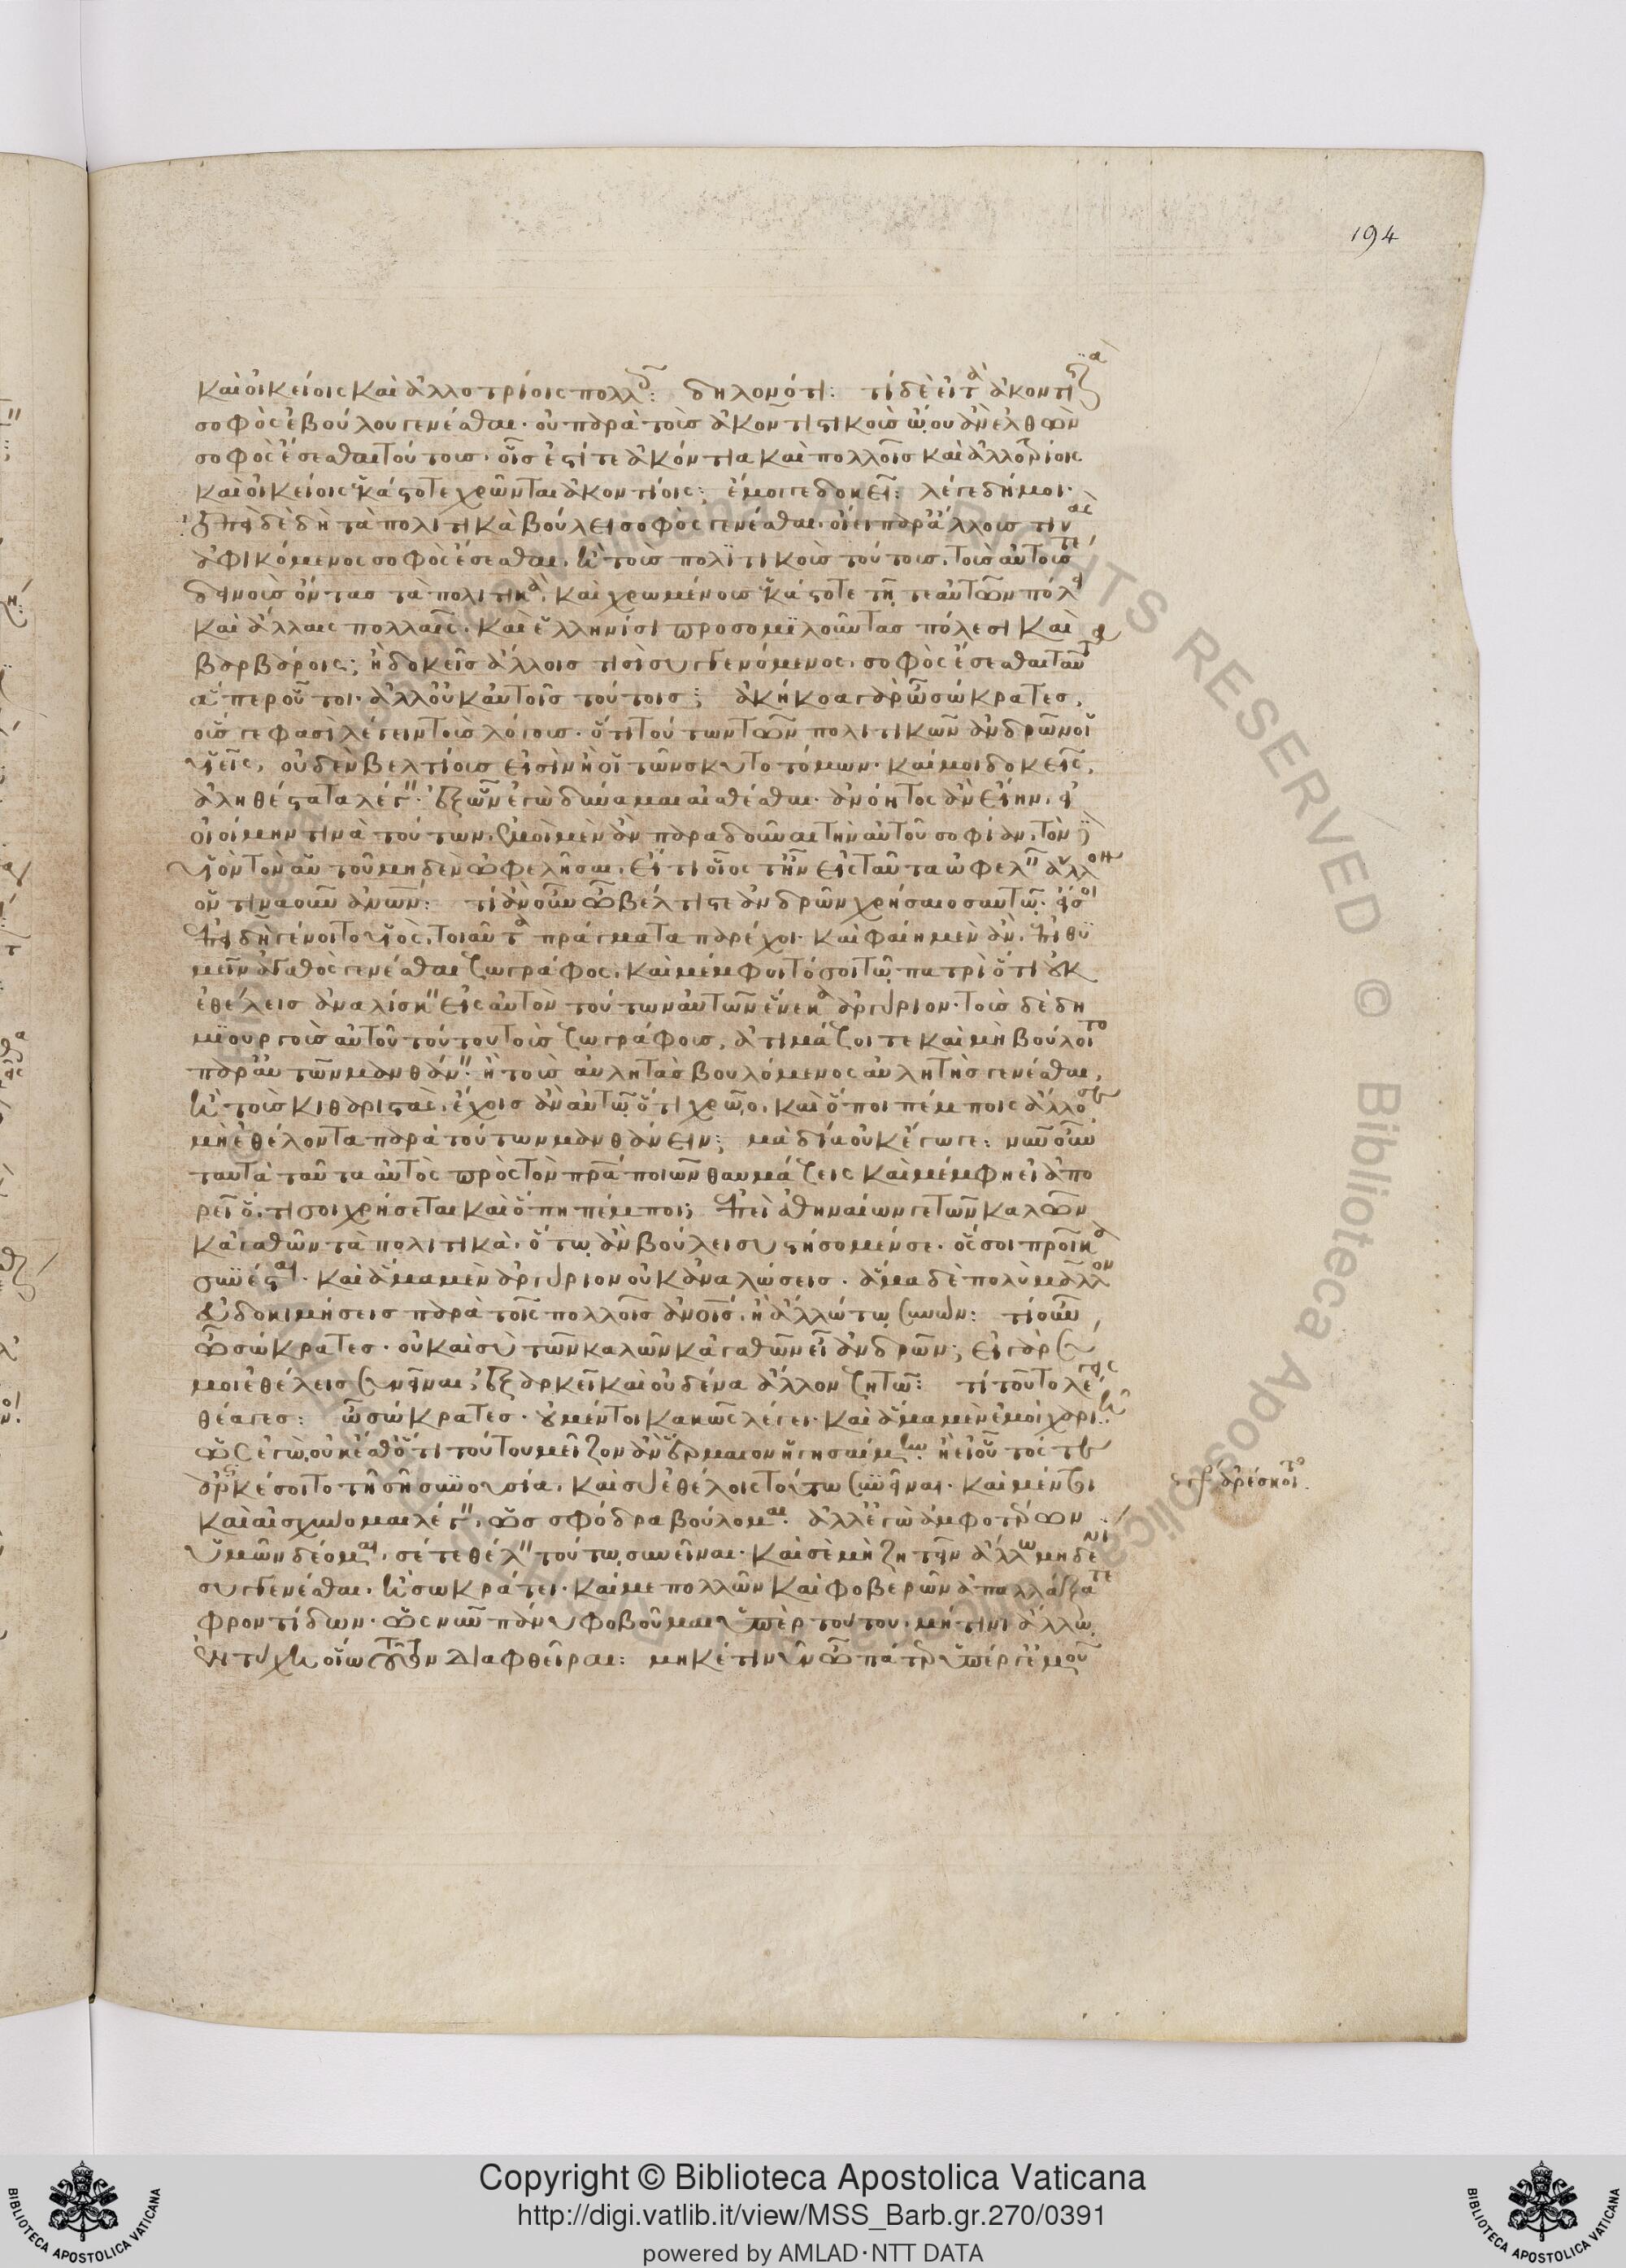 194
καὶ οἰκείοις καὶ ἀλλοτρίοις πολλοῖς: δηλονότι: τί δὲ εἰ τὰ ἀκοντιστικὰ
σοφὸς ἐβούλου γενέσθαι· οὐ παρὰ τοὺς ἀκοντιστικοὺς ὤιου ἂν ἐλθὼν
σοφὸς ἔσεσθαι τούτους, οἷς ἐστί τε ἀκόντια καὶ πολλοῖς καὶ ἀλλοτρίοις
καὶ οἰκείοις ἑκάστοτε χρῶνται ἀκοντίοις; ἔμοιγε δοκεῖ: λέγε δή μοι·
ἐπεὶ δὲ δὴ τὰ πολιτικὰ βούλει σοφὸς γενέσθαι, οἴει παρ' ἄλλους τινὰς
ἀφικόμενος σοφὸς ἔσεσθαι, ἢ τοὺς πολιτικοὺς τούτους, τοὺς αὐτούς τε
δεινοὺς ὄντας τὰ πολιτικά, καὶ χρωμένους ἑκάστοτε τῇ τε αὑτῶν πόλει
καὶ ἄλλαις πολλαῖς, καὶ ἑλλησι προσομιλοῦντας πόλεσι καὶ
βαρβάροις; ἢ δοκεῖς ἄλλοις τισὶ συγγενόμενος, σοφὸς ἔσεσθαι ταῦτα
ἅπερ οὗτοι· ἀλλ' οὐκ αὐτοῖς τούτοις; ἀκήκοα γὰρ ὦ σώκρατες,
οὕς γέ φασι λέγειν τοὺς λόγους, ὅτι τούτων τῶν πολιτικῶν ἀνδρῶν οἱ
υἱεῖς, οὐδὲν βελτίους εἰσὶν ἢ οἱ τῶν σκυτοτόμων· καί μοι δοκεῖς,
ἀληθέστατα λέγειν· ἐξ ὧν ἐγὼ δύναμαι αἰσθέσθαι· ἀνόητος ἂν εἴην, εἰ
οἰοίμην τινὰ τούτων, ἐμοὶ μὲν ἂν παραδοῦναι τὴν αὐτοῦ σοφίαν, τὸν δὲ
υἱὸν τὸν αὑτοῦ μηδὲν ὠφελῆσαι, εἴ τι οἷός τ' ἦν εἰς ταῦτα ὠφελεῖν ἄλλον
ὁντιναοῦν ἀνθρώπων: τί ἂν οὖν ὦ βέλτιστε ἀνδρῶν χρήσαιο σαυτῷ· εἴ σοι
ἐπειδὴ γένοιτο υἱός, τοιαῦτα πράγματα παρέχοι· καὶ φαίη μὲν ἂν, ἐπιθυ
μεῖν ἀγαθὸς γενέσθαι ζωγράφος, καὶ μέμφοιτό σοι τῷ πατρὶ ὅτι οὐκ
ἐθέλεις ἀναλίσκειν εἰς αὐτὸν τούτων αὐτῶν ἕνεκα ἀργύριον· τοὺς δὲ δη
μιουργοὺς αὐτοῦ τούτου τοὺς ζωγράφους, ἀτιμάζοι τε καὶ μὴ βούλοιτο
παρ' αὐτῶν μανθάνειν· ἢ τοὺς αὐλητὰς βουλόμενος αὐλητὴς γενέσθαι,
ἢ τοὺς κιθαριστάς, ἔχοις ἂν αὐτῷ ὅ τι χρῷο, καὶ ὅποι πέμποις ἄλλοσε
μὴ ἐθέλοντα παρὰ τούτων μανθάνειν; μὰ δία οὐκ ἔγωγε: νῦν οὖν
ταὐτὰ ταῦτα αὐτὸς πρὸς τὸν πρα ποιῶν θαυμάζεις καὶ μέμφῃ εἰ ἀπο
ρεῖ ὅ, τι σοι χρήσεται καὶ ὅπῃ πέμποι; ἐπεὶ ἀθηναίων γε τῶν καλῶν
κἀγαθῶν τὰ πολιτικὰ, ὅτῳ ἂν βούλει συστήσομέν σε, ὅς σοι προῖκα
συνέσται· καὶ ἅμα μὲν ἀργύριον οὐκ ἀναλώσεις· ἅμα δὲ πολὺ μᾶλλον
εὐδοκιμήσεις παρὰ τοῖς πολλοῖς ἀνοις, ἢ ἄλλῳ τῳ συνών: τί οὖν
ὦ σώκρατες· οὐ καὶ σὺ τῶν καλῶν κἀγαθῶν εἶ ἀνδρῶν; εἰ γὰρ σύ
μοι ἐθέλεις συνεῖναι, ἐξαρκεῖ καὶ οὐδένα ἄλλον ζητῶ: τί τοῦτο λέγεις
θέαγες: ὦ σώκρατες· οὐ μέντοι κακῶς λέγει· καὶ ἅμα μὲν ἐμοὶ χαριῇ·
ὡς ἐγὼ, οὐκ ἔσθ' ὅ τι τούτου μεῖζον ἂν ἕρμαιον ἡγησαίμην· ἢ εἰ οὗτός τε
ἀρκέσοιτο τῇ σῇ συνουσίᾳ, καὶ σὺ ἐθέλοις τούτῳ συνεῖναι· καὶ μέντοι
γρ ἀρέσκοιτο
καὶ αἰσχύνομαι λέγειν, ὡς σφόδρα βούλομαι· ἀλλ' ἐγὼ ἀμφοτέρων
ὑμῶν δέομαι, σέ τε θέλειν τούτῳ συνεῖναι· καὶ σὲ μὴ ζητεῖν ἄλλῳ μηδενὶ
συγγενέσθαι, ἢ σωκράτει· καί με πολλῶν καὶ φοβερῶν ἀπαλλάξατε
φροντίδων· ὡς νῦν πάνυ φοβοῦμαι ὑπὲρ τούτου, μή τινι ἄλλῳ
ἐντύχῃ οἵῳ τοῦτον διαφθεῖραι: μηκέτι νῦν ὦ πάτερ ὑπέρ γ' ἐμοῦ
Copyright © Biblioteca Apostolica Vaticana
http://digi.vatlib.it/view/MSS_Barb.gr.270/0391
powered by AMLAD·NTT DATA